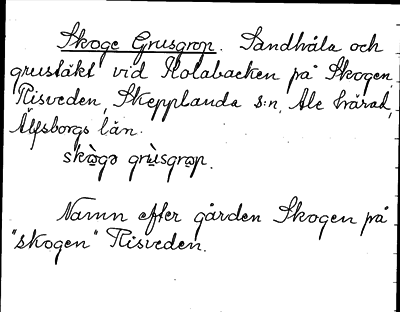 Skoge Grusgrop. Sandhåla och
grustäkt vid Kolabacken på Skogen,
Risveden, Skepplanda s:n, Ale härad,
Älfsborgs län.
skò̤gə grṳ̀sgro̤p.
Namn efter gården Skogen på
"skogen" Risveden.